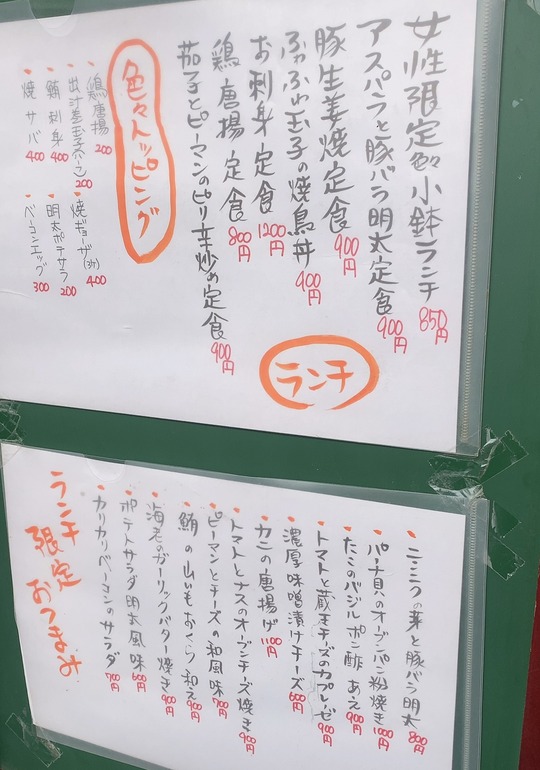 ランチ
女性限定色々小鉢ランチ 850円
アスパラと豚バラ明太定食 900円
豚生姜焼定食 900円
ふわふわ玉子の焼鳥丼 900円
お刺身定食 1200円
鶏唐揚定食 800円
茄子とピーマンのピリ辛炒め定食 900円
色々トッピング
・鶏唐揚 200
・出汁巻玉子ハーフ 200
・鮪刺身 400
・焼サバ 400
・焼ギョーザ(3ケ) 400
・明太ポテサラ 200
・ベーコンエッグ 300
・ニンニクの芽と豚バラ明太 800円
・パーナ貝のオーブンパン粉焼き 1000円
・たこのバジルポン酢あえ 900円
・トマトと蔵王チーズのカプレーゼ 900円
・濃厚味噌漬けチーズ 600円
・カニの唐揚げ 1100円
・トマトとナスのオーブンチーズ焼き 900円
・ピーマンとチーズの和風味 700円
・鮪の山いもおくら和え 900円
・海老のガーリックバター焼き 900円
・ポテトサラダ明太風味 600円
・カリカリベーコンのサラダ 700円
ランチ
限定
おつまみ